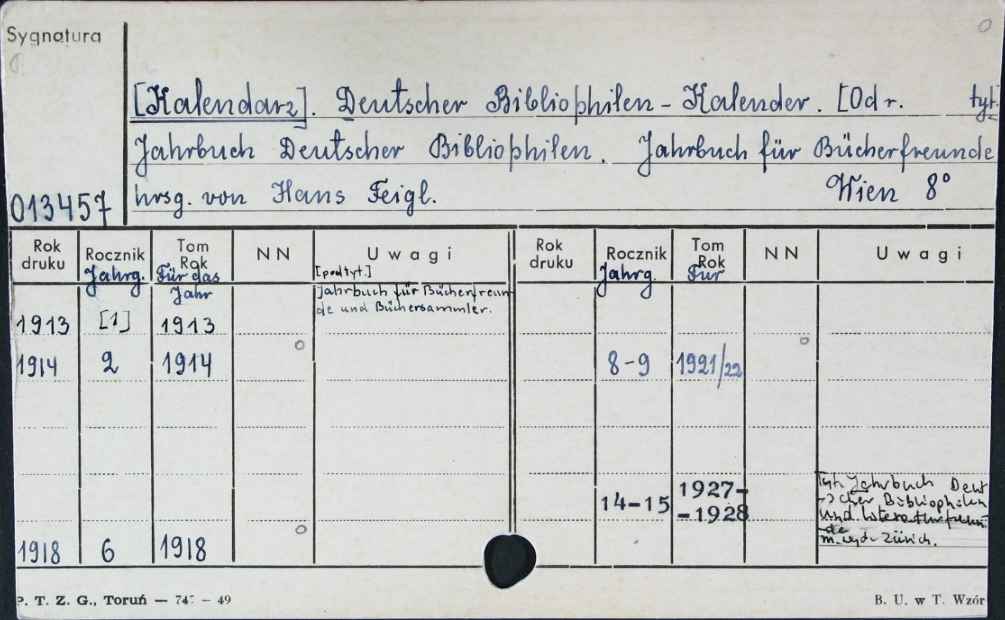 Sygnatura
[Kalendarz]. Deutscher Bibliophilen - Kalender. [Od r. tyt.
Jahrbuch Deutscher Bibliophilen. Jahrbuch für Bücherfreunde
013457 hrsg. von Hans Feigl. Wien 8°
Rok druku Rocznik Tom Rok NN Uwagi Rok druku Rocznik Tom Rok NN Uwagi
Jahrg. Für das Jahr [podtyt.] Jahrg. Für
Jahrbuch für Bücherfreun-
de und Büchersammler.
1913 [1] 1913
1914 2 1914 8-9 1921/22
14-15 1927-
-1928
Tyt. Jahrbuch Deut
-scher Bibliophilen
und Literaturfreun-
de
m. wyd. Zürich.
1918 6 1918
P. T. Z. G., Toruń — 49
B. U. w T. Wzór